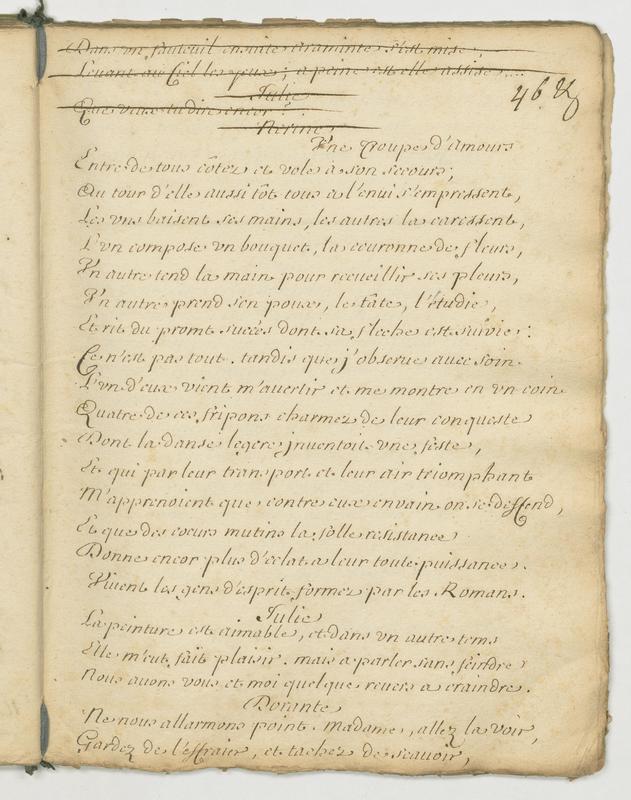 Dans un fauteuil ensuite Araminte s'est mise,
Levant au Ciel les yeux; a peine est elle assise....
Julie
Que veux tu dire encor?
Nerine
46
Une Troupe d'amours
Entre de tous côtez et vole à son secours;
Au tour d'elle aussi tôt tous a l'enui s'empressent,
Les vns baisent ses mains, les autres la caressent,
L'vn compose vn bouquet, la couronne de fleurs,
Vn autre tend la main pour recueillir ses pleurs,
Vn autre prend son poux, le tâte, l'étudie,
Et rit du promt succès dont sa fleche est suivie:
Ce n'est pas tout. tandis que j'observe avec soin
L'vn d'eux vient m'avertir et me montre en vn coin
Quatre de ces fripons charmez de leur conqueste
Dont la danse legere jnventoit vne feste,
Et qui par leur transport et leur air triomphant
M'apprenoient que contre eux envain on se deffend,
Et que des coeurs mutins la folle resistance
Donne encor plus d'eclat a leur toute puissance.
Vivent les gens d'esprit formez par les Romans.
Julie
La peinture est aimable, et dans vn autre tems
Elle m'eut fait plaisir. mais a parler sans feindre
Nous avons vous et moi quelque revers a craindre.
Dorante
Ne nous allarmons point. Madame, allez la voir,
Gardez de l'effraier, et tachez de scavoir,